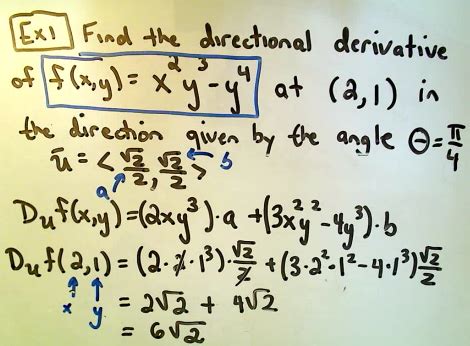 Ex1 Find the directional derivative
of f(x,y) = x²y³-y⁴ at (2,1) in
the direction given by the angle Θ=π/4
ū = < √2/2, √2/2 > b
a
Duf(x,y)=(2xy³)·a+(3x²y²-4y³)·b
Duf(2,1)=(2·2·1³)·√2/2+(3·2²·1²-4·1³)√2/2
x y = 2√2 + 4√2
= 6√2